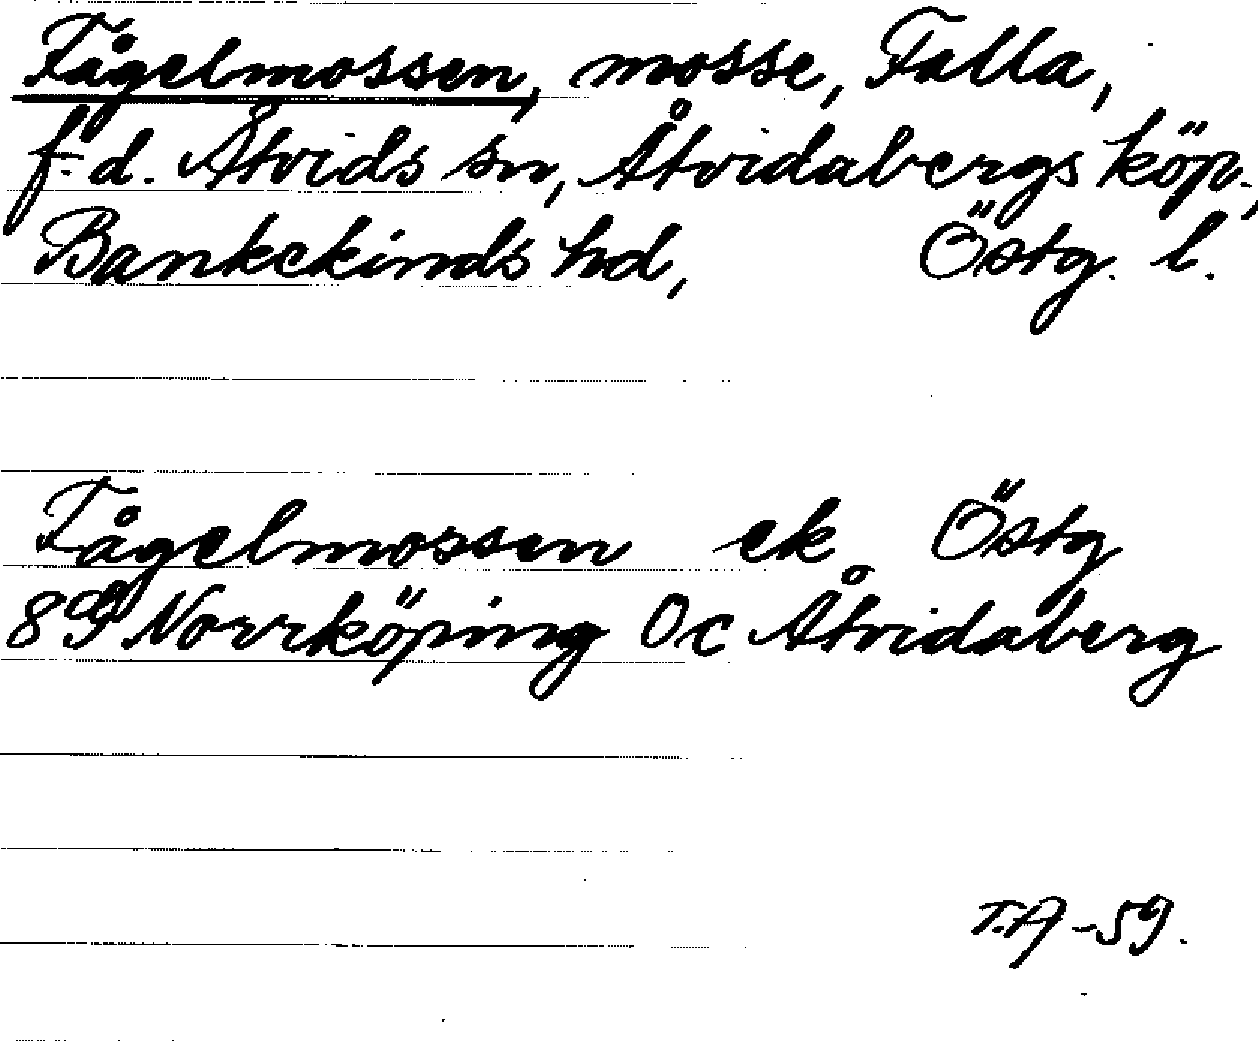 Fågelmossen, mosse, Falla,
f. d. Åtvids sn, Åtvidabergs köp.,
Bankekinds hd, Östg. l.
Fågelmossen ek Östg
8G Norrköping 0c Åtvidaberg
T.A -59.